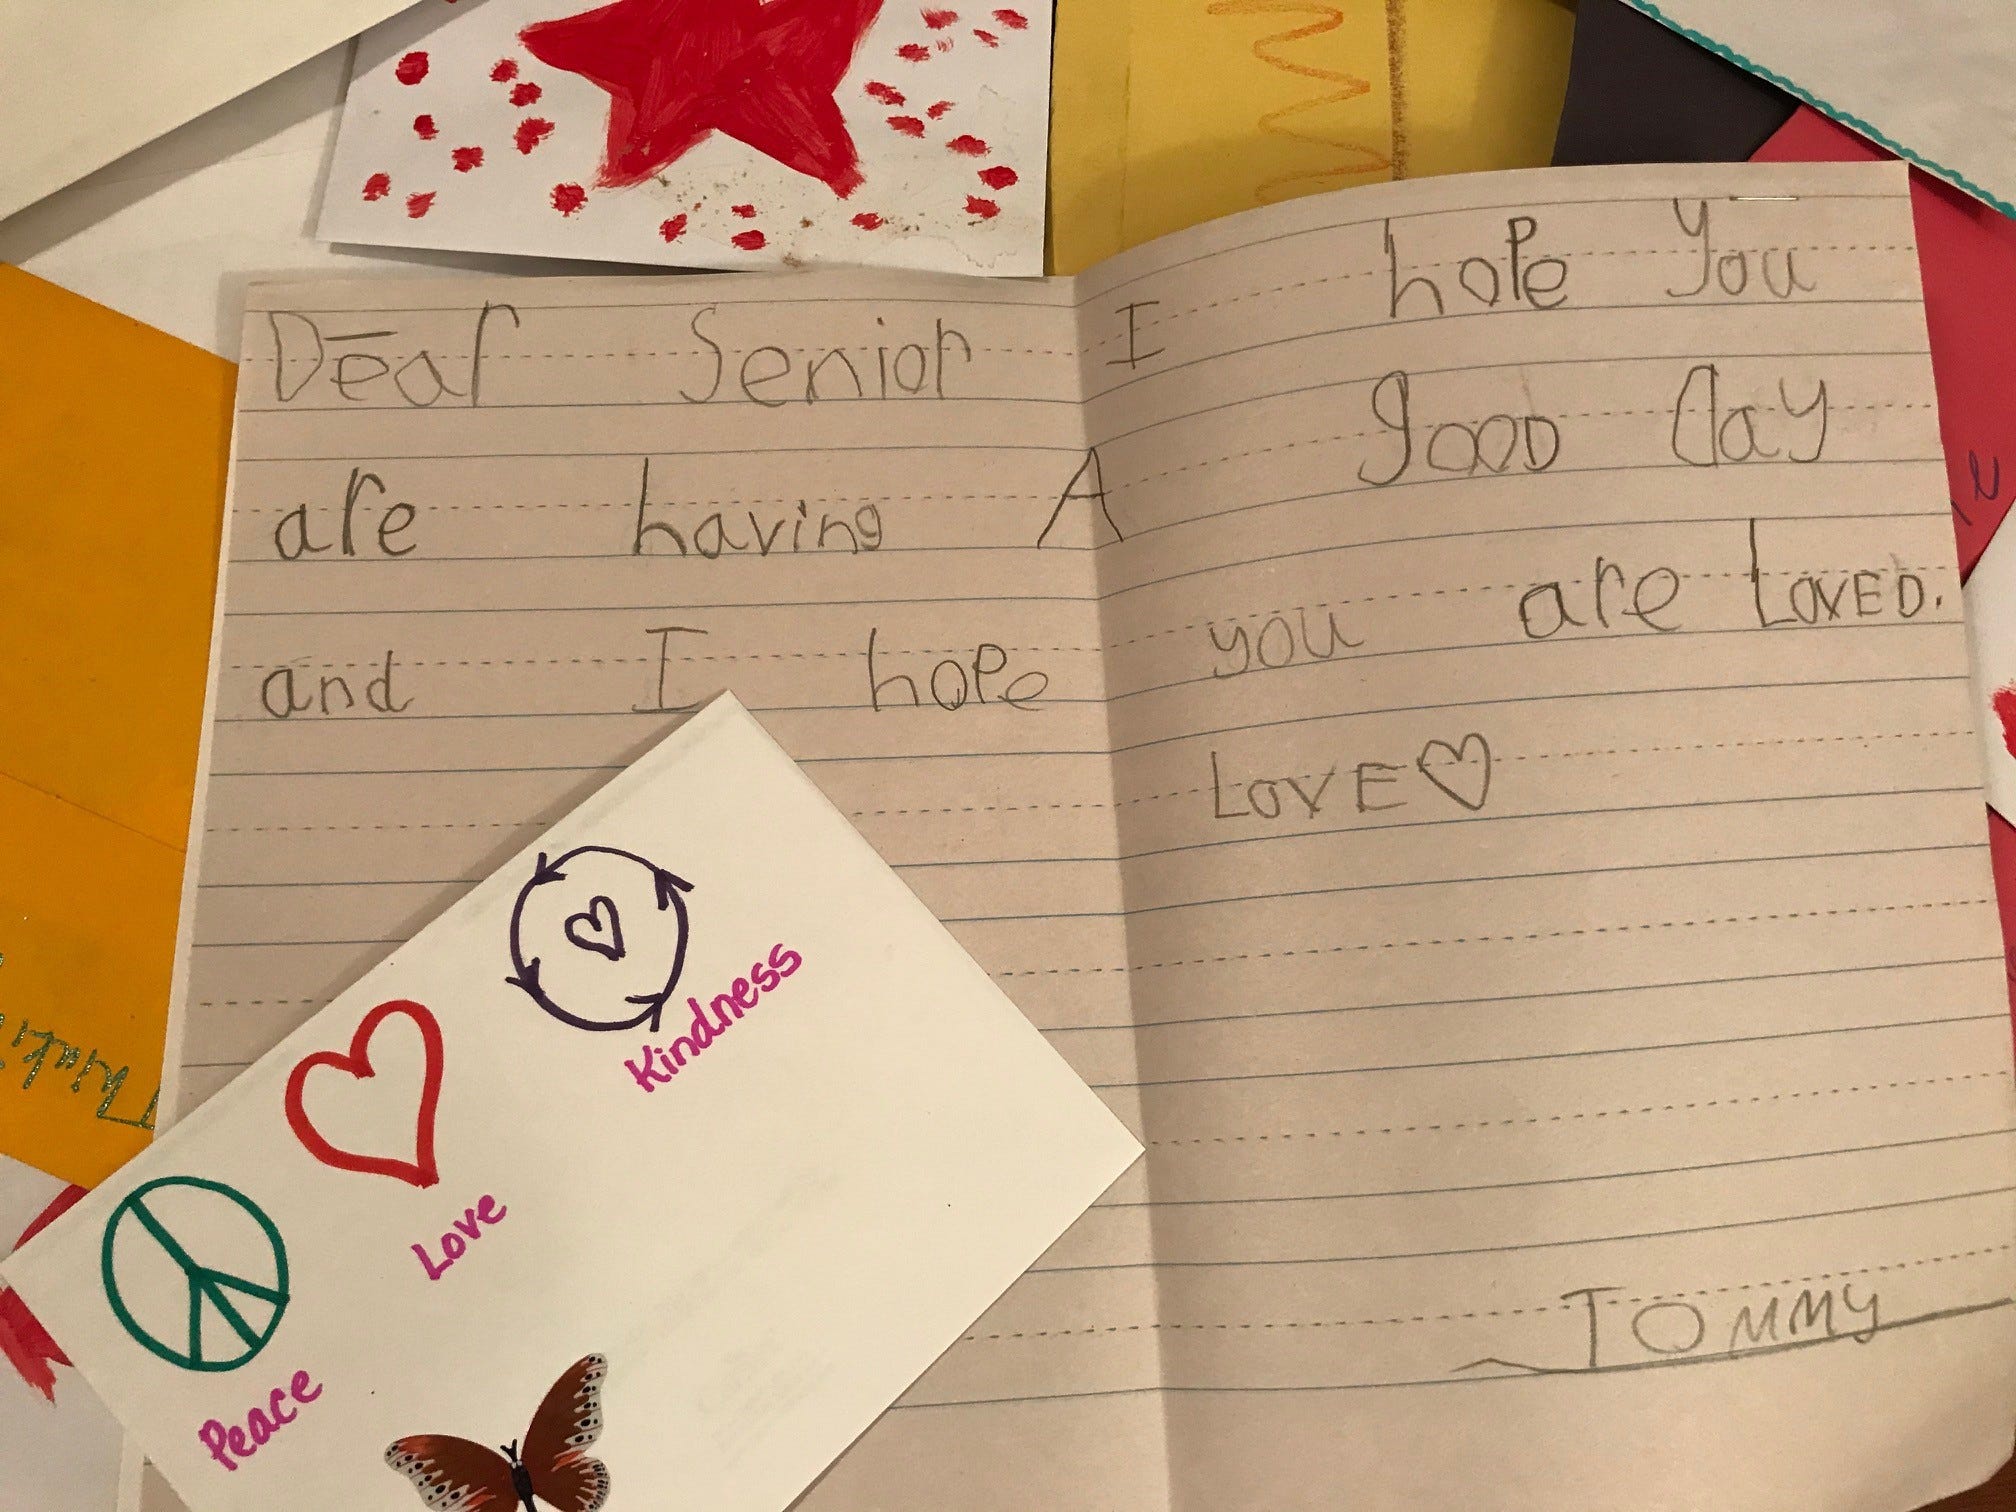 Dear Senior I hope you
are having A good day
and I hope you are LOVED.
LOVE
TOMMY
Kindness
Love
Peace